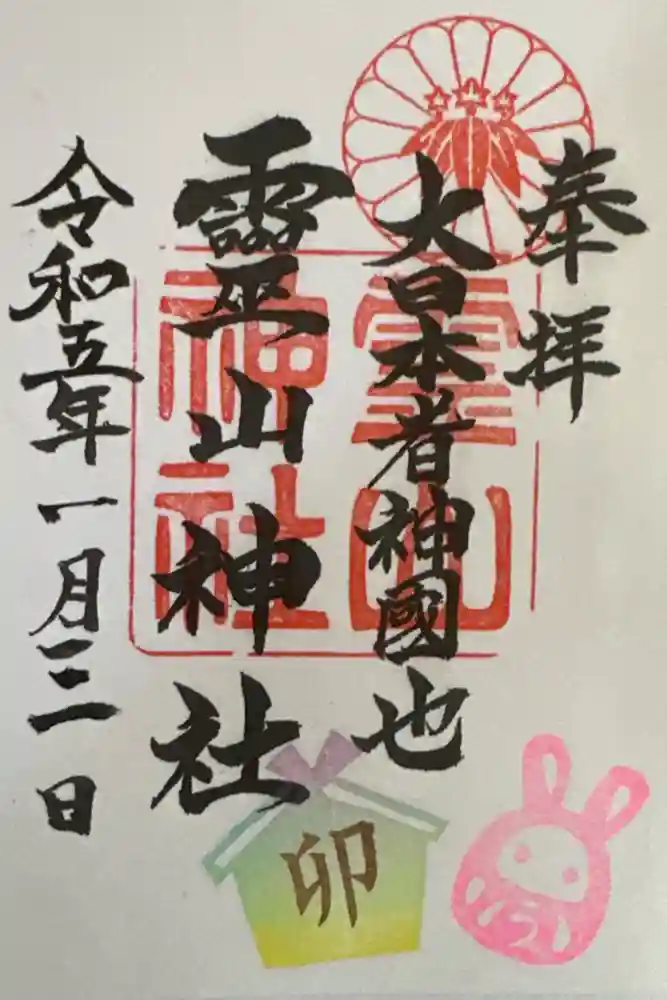 奉拝
大日本者神國也
靈山神社
令和五年一月三日
霊山神社
卯
う